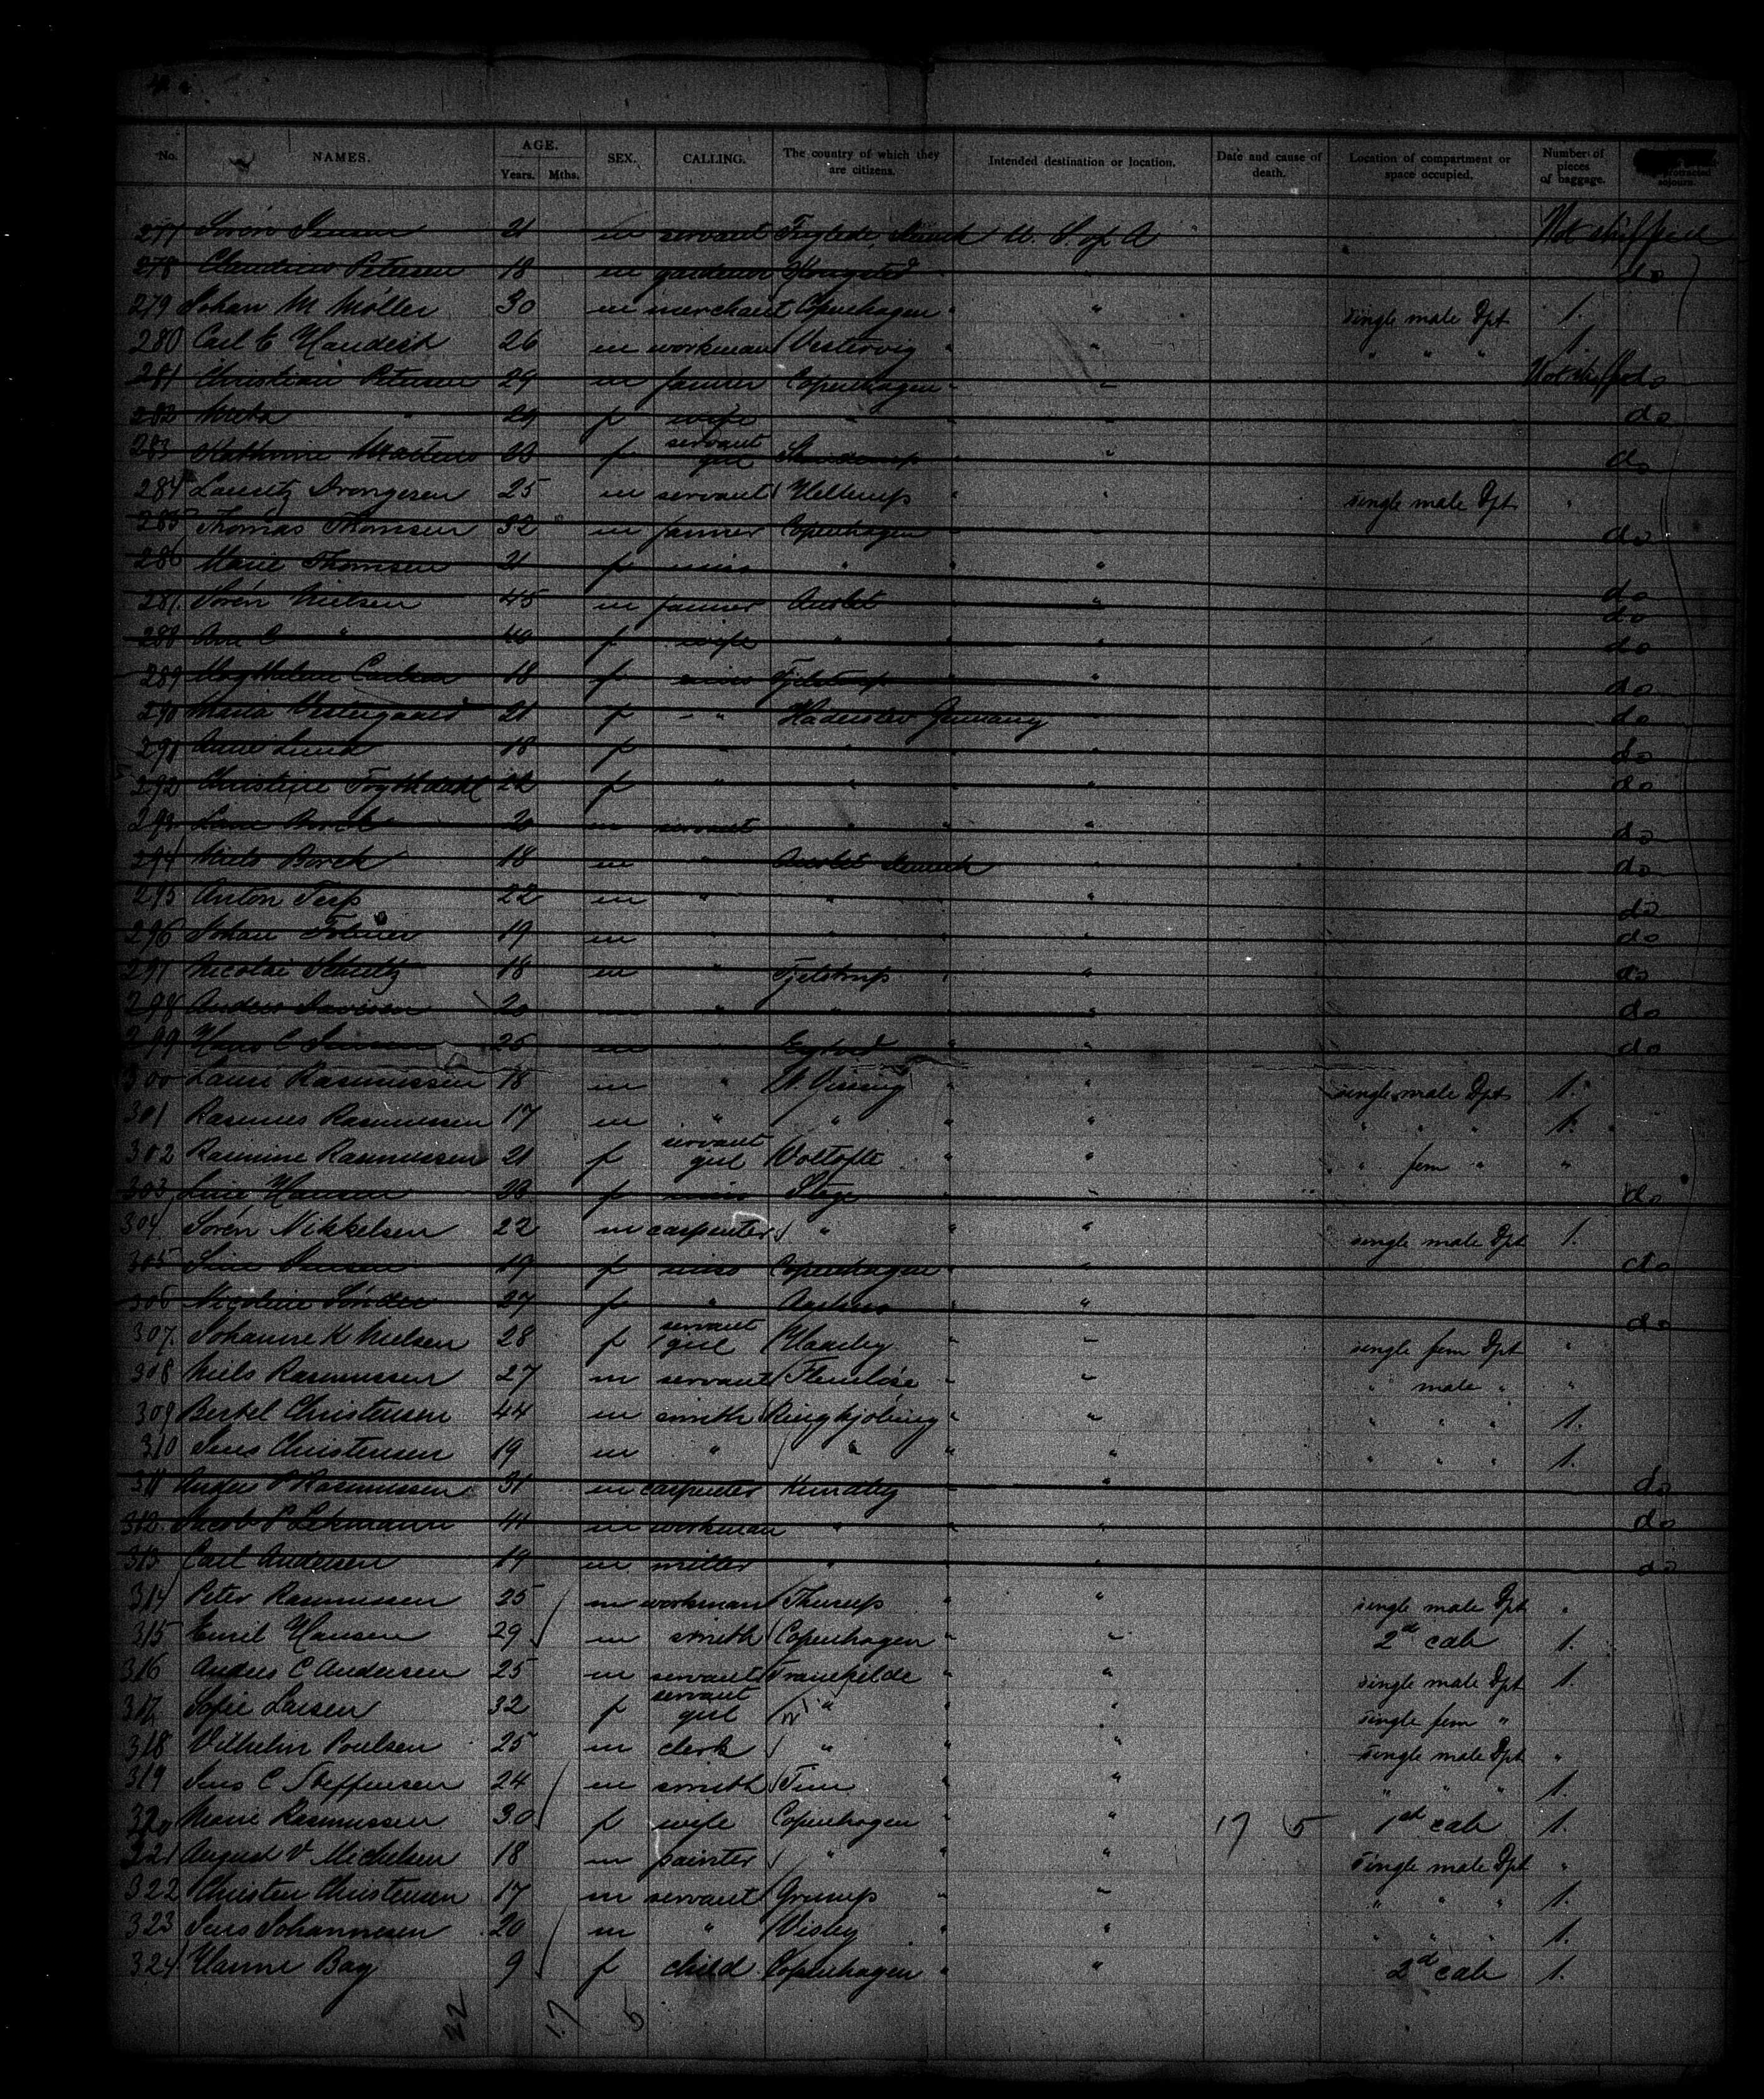 No. NAMES. AGE. Years. Mths. SEX. CALLING. The country of which they are citizens. Intended destination or location. Date and cause of death. Location of compartment or space occupied. Number of pieces of baggage. protracted sojourn.
277 Sören Jensen 21 m servant U. S. of A Not shipped
278 Petersen 18 m gardener " do
279 Johan M Möller 30 m merchant Copenhagen " " single male Dpt 1.
280 Carl E 26 m workman Vestervig " " " " " 1
281 Christian Petersen 29 m farmer Copenhagen " " Not shipped do
282 Meta " 29 f wife " " " do
283 Kathrine Martens 23 f servant girl " " do
284 Lauritz 25 m servant " " single male Dpt "
285 Thomas Thomsen 32 m farmer Copenhagen " " do
286 Marie Thomsen 21 f miss " " " do
287. Sören Nielsen 45 m farmer " " do
288 Ane C " 40 f wife " " " do
289 18 f miss Fjelstrup " " do
290 Maria Vestergaard 21 f " Haderslev Germany " do
291 Anne Lund 18 f " " " " do
292 Christine 22 f " " " " do
293 20 m servant " " " do
294 Niels Borch 18 m " " do
295 Anton Terp 22 m " " " do
296 Johan 19 m " " " " do
297 Nicolai Schultz 18 m " Fjelstrup " " do
298 Anders 20 m " " " " do
299 Hans C Jensen 25 m " " " do
300 Laurs Rasmussen 18 m " " " single male Dpt 1.
301 Rasmus Rasmussen 17 m " " " " " " " 1.
302 Rasmine Rasmussen 21 f servant girl Voltofte " " " fem " "
303 Line Hansen 23 f miss Stege " " do
304 Sören Mikkelsen 22 m carpenter " " " single male Dpt 1.
305 Sine Jensen 19 f miss Copenhagen " " do
306 Nicoline Sönder 27 f " Aarhus " do
307. Johanne K Nielsen 28 f servant girl Haarby " " single fem Dpt "
308 Niels Rasmussen 27 m servant Flemlöse " " " male " "
309 Bertel Christensen 44 m smith Ringkjöbing " " " " " 1.
310 Jens Christensen 19 m " " " " " " " 1.
311 Anders P Rasmussen 31 m carpenter Kundby " " do
312. Jacob P Lehmann 41 m workman " " " do
313 Carl Andersen 19 m miller " " " do
314 Peter Rasmussen 25 m workman " " single male Dpt "
315 Emil Hansen 29 m smith Copenhagen " " 2d cab 1.
316 Anders C Andersen 25 m servant Tranekilde " " single male Dpt 1.
317 Sofie Larsen 32 f servant girl " " " single fem "
318 Vilhelm Poulsen 25 m clerk " " single male Dpt "
319 Jens C Steffensen 24 m smith Tim " " " " " 1.
320 Marie Rasmussen 30 f wife Copenhagen " 17 5 1st cab 1.
321 August V Michelsen 18 m painter " " single male Dpt "
322 Christen Christensen 17 m servant " " " " 1.
323 Jens Johannesen 20 m " Visby " " " " " 1.
324 Hanne Bay 9 f child Copenhagen " " 2d cab 1.
22 17 5